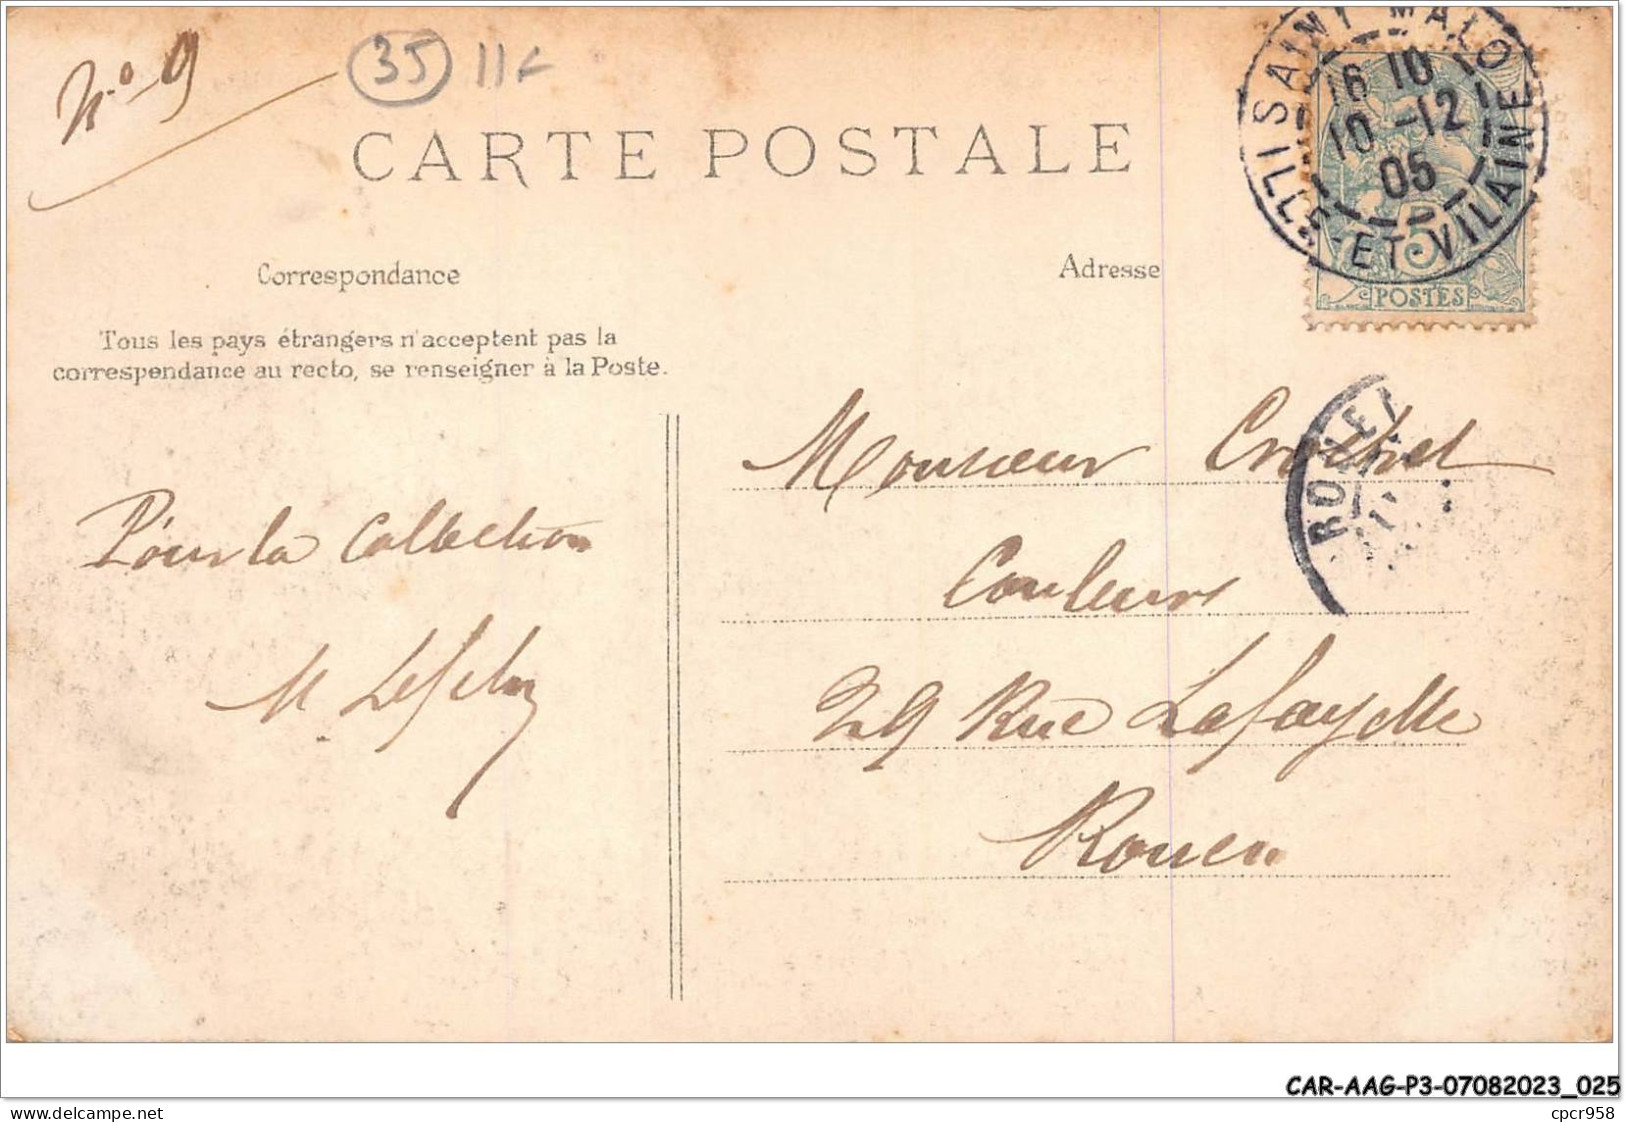 N° 9
35
CARTE POSTALE
SAINT MALO
16 10
10 -12
05
ILLE-ET-VILAINE
5
POSTES
Correspondance
Adresse
Tous les pays étrangers n'acceptent pas la
correspondance au recto, se renseigner à la Poste.
Pour la Collection
Monsieur
Couleurs
29 Rue Lafayette
Rouen
ROUEN
CAR-AAG-P3-07082023_025
delcampe.net
cpcr958